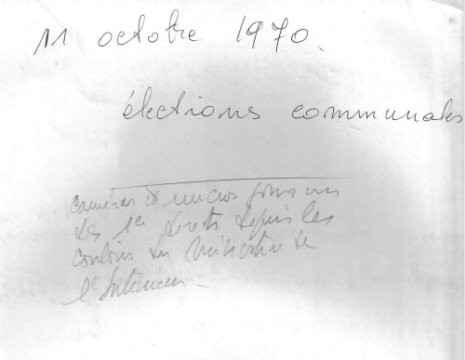 11 octobre 1970.
élections communales
caméras & micros pour un
des 1er directs depuis les
couloirs du Ministère de
l'Intérieur.